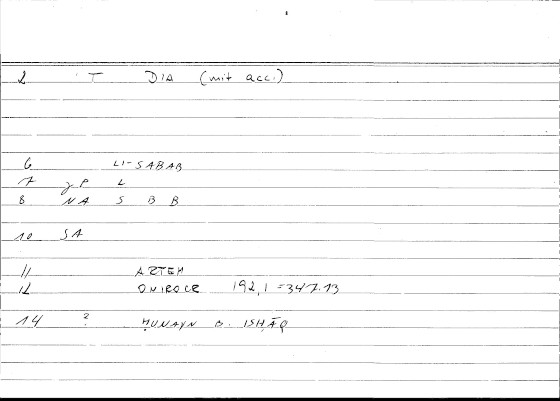 2 T DIA (mit acc.)
6 LI-SABAB
7 γP L
8 NA S B B
10 SA
11 ARTEM
12 ONIROCR 192,1 = 347.13
14 ? ḤUNAYN B. ISḤĀQ